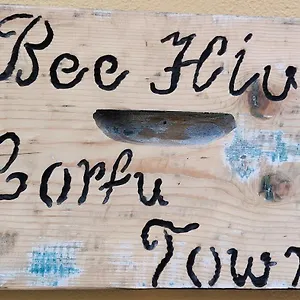 Bee Hiv
Corfu
Town